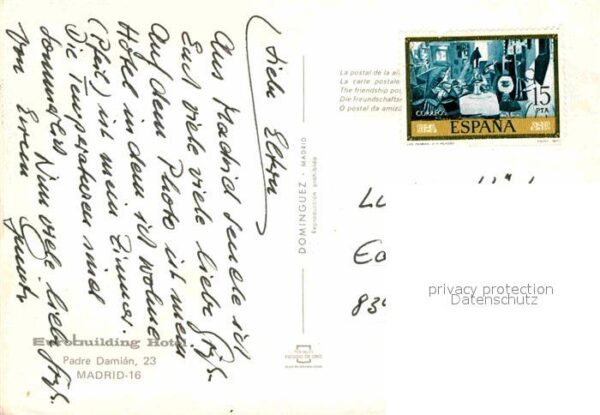 Liebe Eltern
Aus Madrid sende ich
Euch viele viele liebe Grüße.
Auf dem Photo ist mein
Hotel in dem ich wohne
(Pfeil) ist mein Zimmer.
Die Temperaturen sind
sommerlich. Nun viele liebe Grüße.
Von Eurem
Eurobuilding Hotel
Padre Damián, 23
MADRID-16
DOMINGUEZ - MADRID
Reproducción prohibida
La postal de la
La carte postale
The friendship
Die Freundschafts
O postal da
CORREOS
15
PTA
ESPAÑA
83
privacy protection
Datenschutz